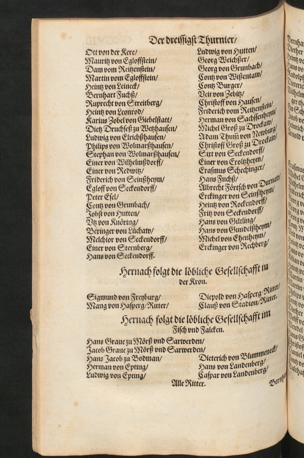 Der dreissigst Thurnier/
Ott von der Kere/
Mauritz von Egloffstein/
Dam von Reitzenstein/
Martin von Egloffstein/
Heintz von Leineck/
Bernhart Fuchß/
Ruprecht von Streitberg/
Heintz von Leonrod/
Karius Zobel von Giebelstatt/
Dietz Druchseß zu Wetzhausen/
Ludwig von Eirichßhausen/
Philips von Wolmarßhausen/
Stephan von Wolmarßhausen/
Einer von Wilhelmßdorff/
Einer von Redwitz/
Friderich von Seinßheym/
Egloff von Seckendorff/
Peter Esel/
Contz von Grumbach/
Jobst von Hutten/
Utz von Knöring/
Beringer von Lüchaw/
Melchior von Seckendorff/
Einer von Sternberg/
Hans von Seckendorff.
Ludwig von Hutten/
Georg Weichßler/
Georg von Grumbach/
Contz von Wisentaw/
Contz Burger/
Veit von Zebitz/
Christoff von Hausen/
Friderich von Reitzenstein/
Herman von Sachssenheym/
Michel Groß zu
Adam Thum von Newburg/
Christoff Groß zu
Sixt von Seckendorff/
Einer von Erolzheym/
Erasmus Schechinger/
Hans Fuchß/
Albrecht Förtsch von
Erckinger von Seinßheym/
Heintz von Rockendorff/
Fritz von Seckendorff/
Hans von Gütling/
Hans von Gundelßheym/
Michel von Ehenheym/
Erckinger von Rechberg/
Hernach folgt die löbliche Gesellschafft im
der Kron.
Sigmund von Freyburg/
Mang von Hasperg/Ritter/
Diepold von Hasperg/Ritter/
Clauß von Stadion/Ritter.
Hernach folgt die löbliche Gesellschafft im
Fisch und Falcken.
Hans Graue zu Mörß und Sarwerden/
Jacob Graue zu Mörß und Sarwerden/
Hans Jacob zu Bodman/
Herman von Epting/
Ludwig von Epting/
Dieterich von Blummeneck/
Hans von Landenberg/
Caspar von Landenberg/
Alle Ritter.